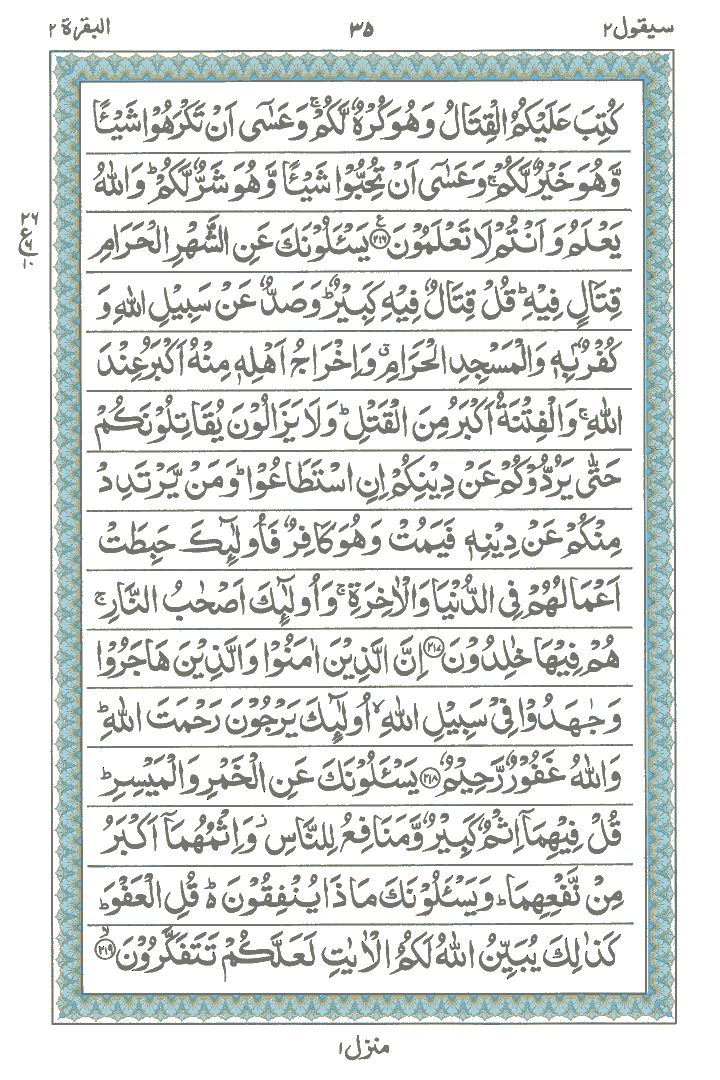 سيقول ٢ ٣٥ البقرة ٢
كُتِبَ عَلَيْكُمُ الْقِتَالُ وَهُوَ كُرْهٌ لَّكُمْ ۚ وَعَسٰٓى اَنْ تَكْرَهُوْا شَيْـًٔا
وَّهُوَ خَيْرٌ لَّكُمْ ۚ وَعَسٰٓى اَنْ تُحِبُّوْا شَيْـًٔا وَّهُوَ شَرٌّ لَّكُمْ ؕ وَاللّٰهُ
يَعْلَمُ وَاَنْتُمْ لَا تَعْلَمُوْنَ ﴿٢١٦﴾ ع يَسْـَٔلُوْنَكَ عَنِ الشَّهْرِ الْحَرَامِ
٢٦
ع
٦
١٠
قِتَالٍ فِيْهِ ؕ قُلْ قِتَالٌ فِيْهِ كَبِيْرٌ ؕ وَصَدٌّ عَنْ سَبِيْلِ اللّٰهِ وَ
كُفْرٌۢ بِهٖ وَالْمَسْجِدِ الْحَرَامِ ۗ وَاِخْرَاجُ اَهْلِهٖ مِنْهُ اَكْبَرُ عِنْدَ
اللّٰهِ ۚ وَالْفِتْنَةُ اَكْبَرُ مِنَ الْقَتْلِ ؕ وَلَا يَزَالُوْنَ يُقَاتِلُوْنَكُمْ
حَتّٰى يَرُدُّوْكُمْ عَنْ دِيْنِكُمْ اِنِ اسْتَطَاعُوْا ؕ وَمَنْ يَّرْتَدِدْ
مِنْكُمْ عَنْ دِيْنِهٖ فَيَمُتْ وَهُوَ كَافِرٌ فَاُولٰٓئِكَ حَبِطَتْ
اَعْمَالُهُمْ فِى الدُّنْيَا وَالْاٰخِرَةِ ۚ وَاُولٰٓئِكَ اَصْحٰبُ النَّارِ ۚ
هُمْ فِيْهَا خٰلِدُوْنَ ﴿٢١٧﴾ اِنَّ الَّذِيْنَ اٰمَنُوْا وَالَّذِيْنَ هَاجَرُوْا
وَجٰهَدُوْا فِىْ سَبِيْلِ اللّٰهِ ۙ اُولٰٓئِكَ يَرْجُوْنَ رَحْمَتَ اللّٰهِ ؕ
وَاللّٰهُ غَفُوْرٌ رَّحِيْمٌ ﴿٢١٨﴾ يَسْـَٔلُوْنَكَ عَنِ الْخَمْرِ وَالْمَيْسِرِ ؕ
قُلْ فِيْهِمَآ اِثْمٌ كَبِيْرٌ وَّمَنَافِعُ لِلنَّاسِ ز وَاِثْمُهُمَآ اَكْبَرُ
مِنْ نَّفْعِهِمَا ؕ وَيَسْـَٔلُوْنَكَ مَاذَا يُنْفِقُوْنَ ەؕ قُلِ الْعَفْوَ ؕ
كَذٰلِكَ يُبَيِّنُ اللّٰهُ لَكُمُ الْاٰيٰتِ لَعَلَّكُمْ تَتَفَكَّرُوْنَ ۙ ﴿٢١٩﴾
منزل ١